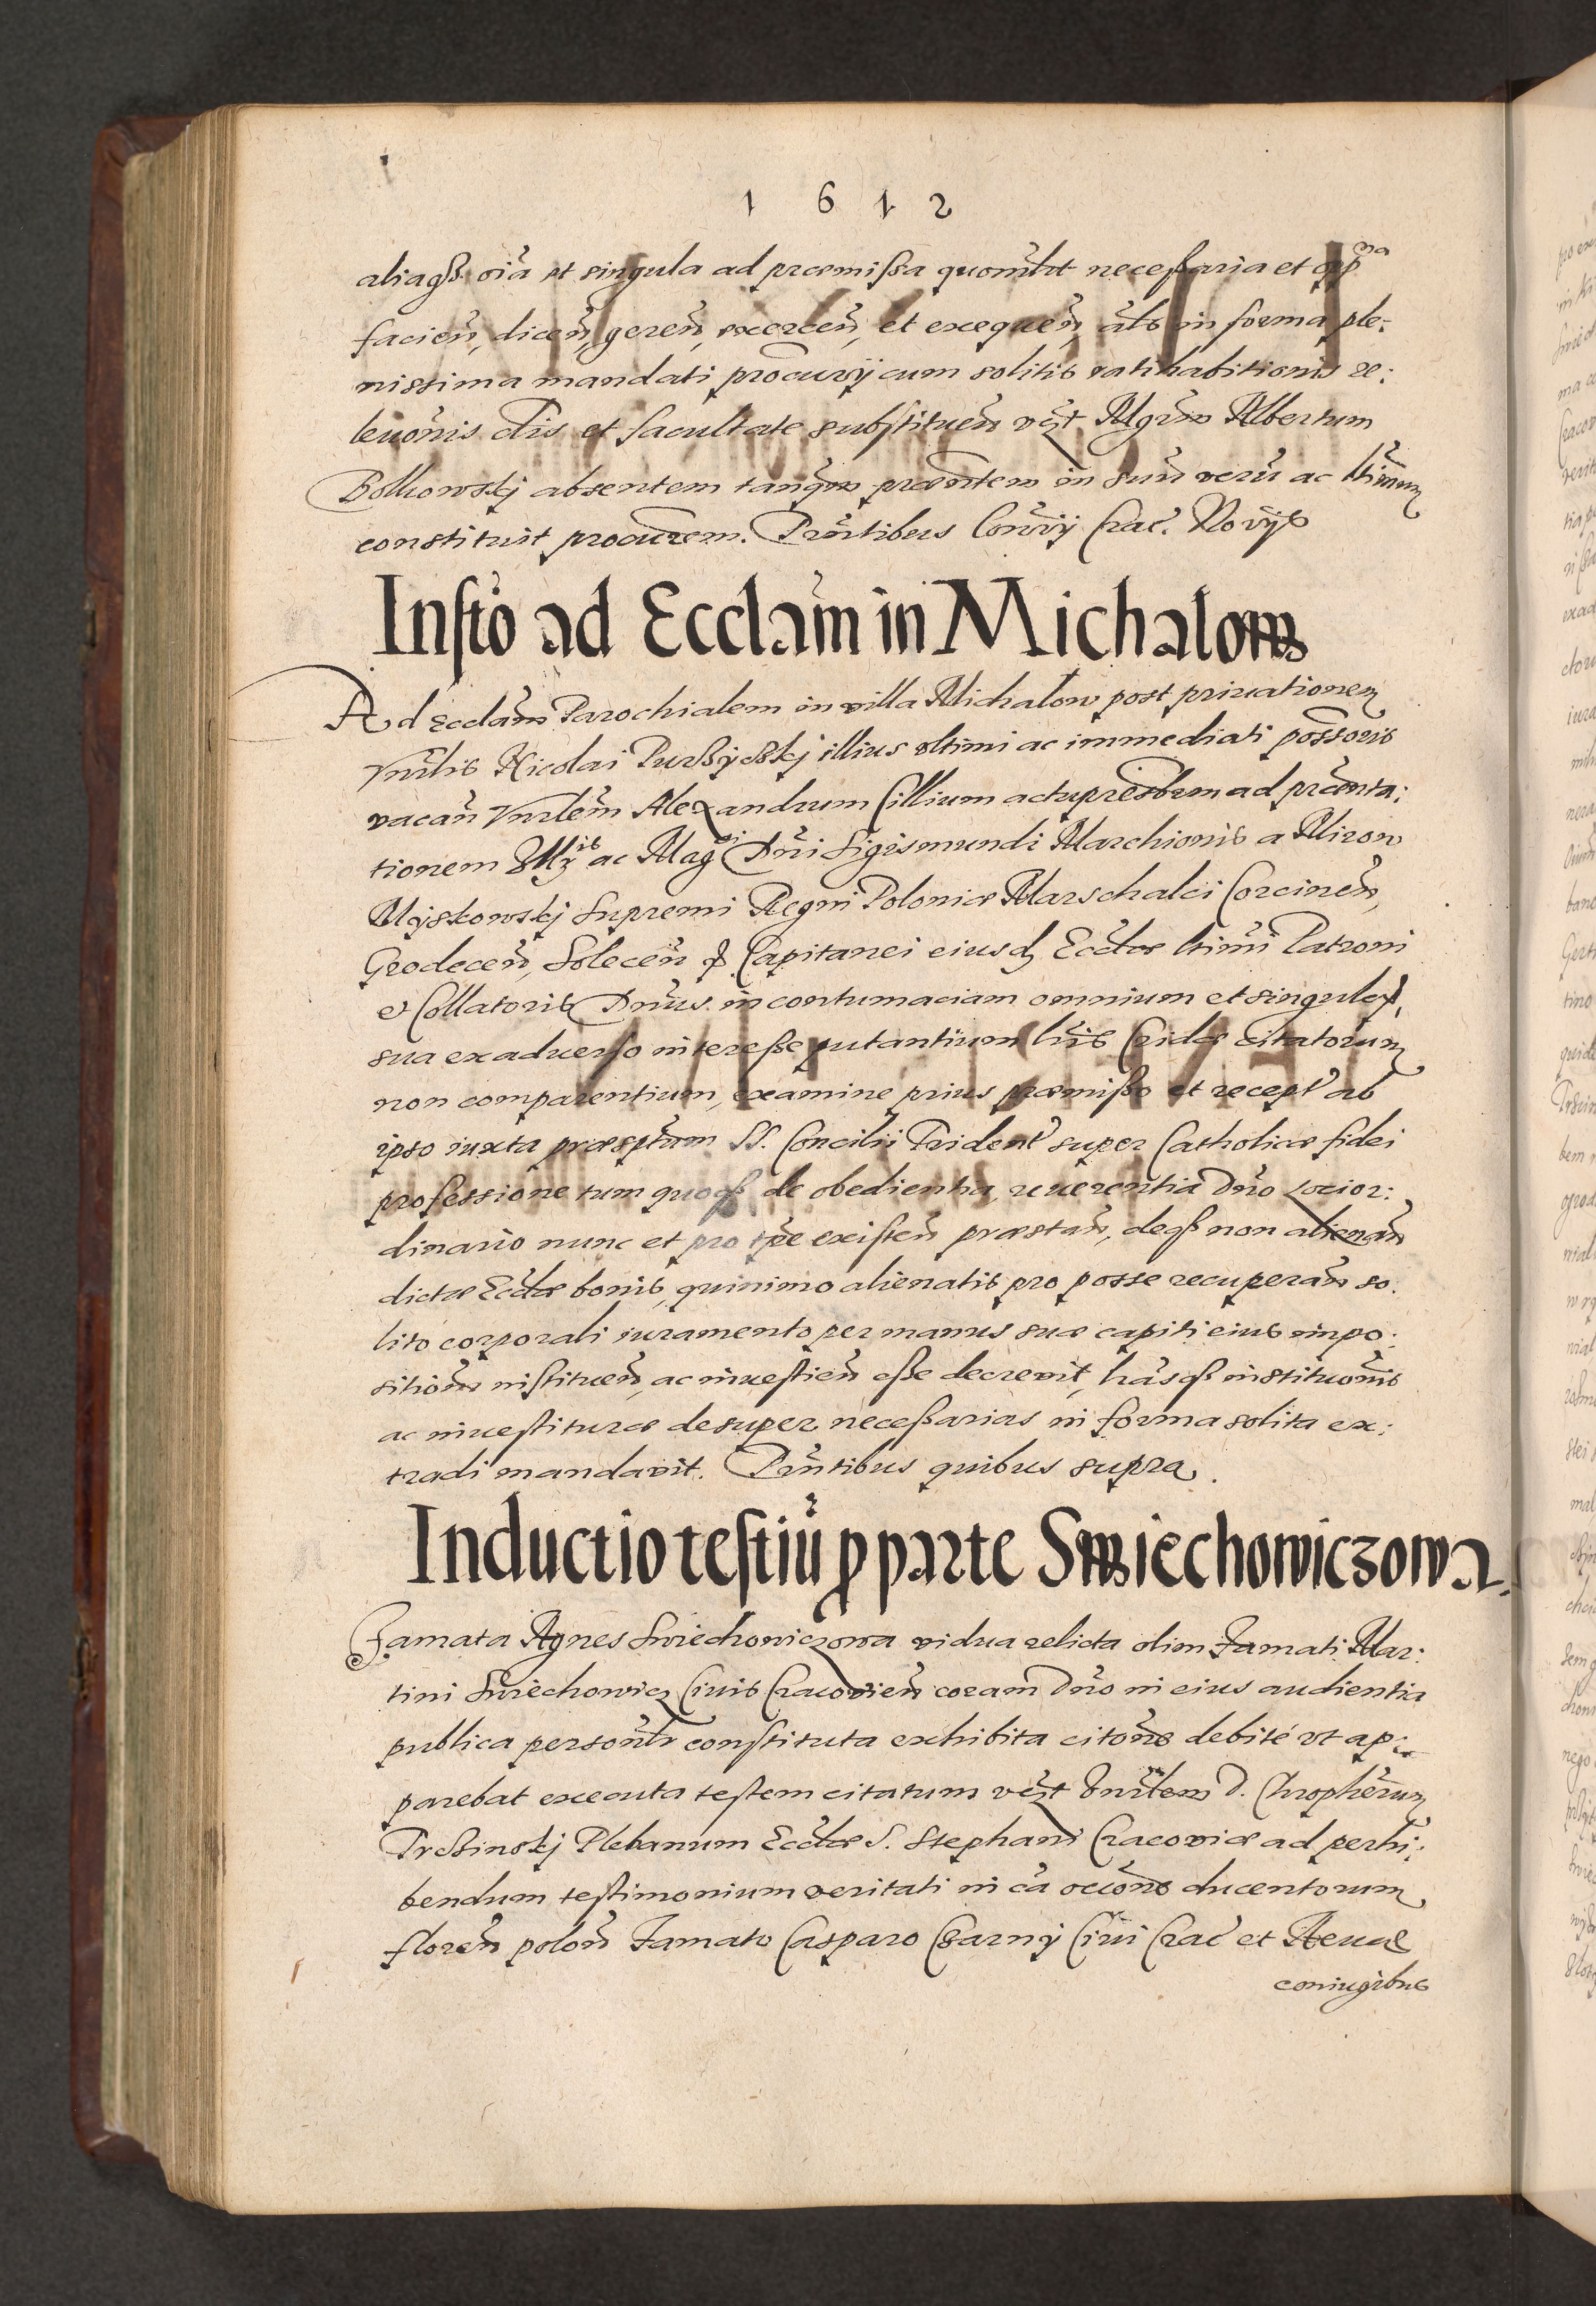 1 6 1 2
aliaqß oīa et singula ad præmißa quomlt neceßaria et opp^na
facieñ, diceñ, gereñ, exerceñ, et exequeñ, als in forma ple:
nissima mandati procurij cum solitis ratihabitionis re:
leuōnis clis et facultate substitueñ vēzt Mgrm Albertum
Bolkowskj absentem tanq̃m præntem in suū verū ac ltimum
constituit procurem. Prñtibus Conuij Crac. Novijs
Insťo ad Ecclãm in Michalow
Ad Ecclam Parochialem in villa Michalow post priuationem
Vnrlis Nicolai Purßyckskj illius vltimi ac immediati possoris
vacañ Vnrlem Alexandrum Cillium actu presbrm ad præsenta:
tionem Illris ac Magci Dñi Sigismundi Marchionis a Mirow
Myskowskj Supremi Regni Poloniæ Marschalci Corcineñ,
Grodeceñ, Soleceñ & Capitanei eiusdz Eccliæ ltimi Patroni
et Collatoris Dñus in contumaciam omnium et singulor,
sua ex aduerso intereße putantium lris Cridæ citatorum
non comparentium, examine prius præmißo et recept ab
ipso iuxta præsptum SS. Concilii Trident super Catholicæ fidei
professione tum quoqß de obedientia, reuerentia Dño Locior:
dinario nunc et pro tpe existeñ præstañ, deqß non alienañ
dictæ Eccliæ bonis, quinimo alienatis pro posse recuperañ so:
lito corporali iuramento per manus suæ capiti eius impo:
sitiom instituen, ac inuestien eße decrevit, lrasqß institutionis
ac inuestituræ desuper neceßarias in forma solita ex:
tradi mandavit. Prñtibus quibus supra.
Inductio testiū p parte Swiechowiczowa.
Famata Agnes Swiechowiczowa vidua relicta olim Famati Mar:
tini Swiechowicz Ciuis Cracovieñ coram Dño in eius audientia
publica personlr constituta exhibita citone debité vt ap:
parebat executa testem citatum vezt Vnrlem D. Chropherum
Prßinskj Plebanum Eccliæ S. Stephani Cracoviæ ad perhi:
bendum testimonium veritati in ca occone ducentorum
floreñ poloñ Famato Casparo Czarny Ciui Crac et Aeuæ
coniugibus